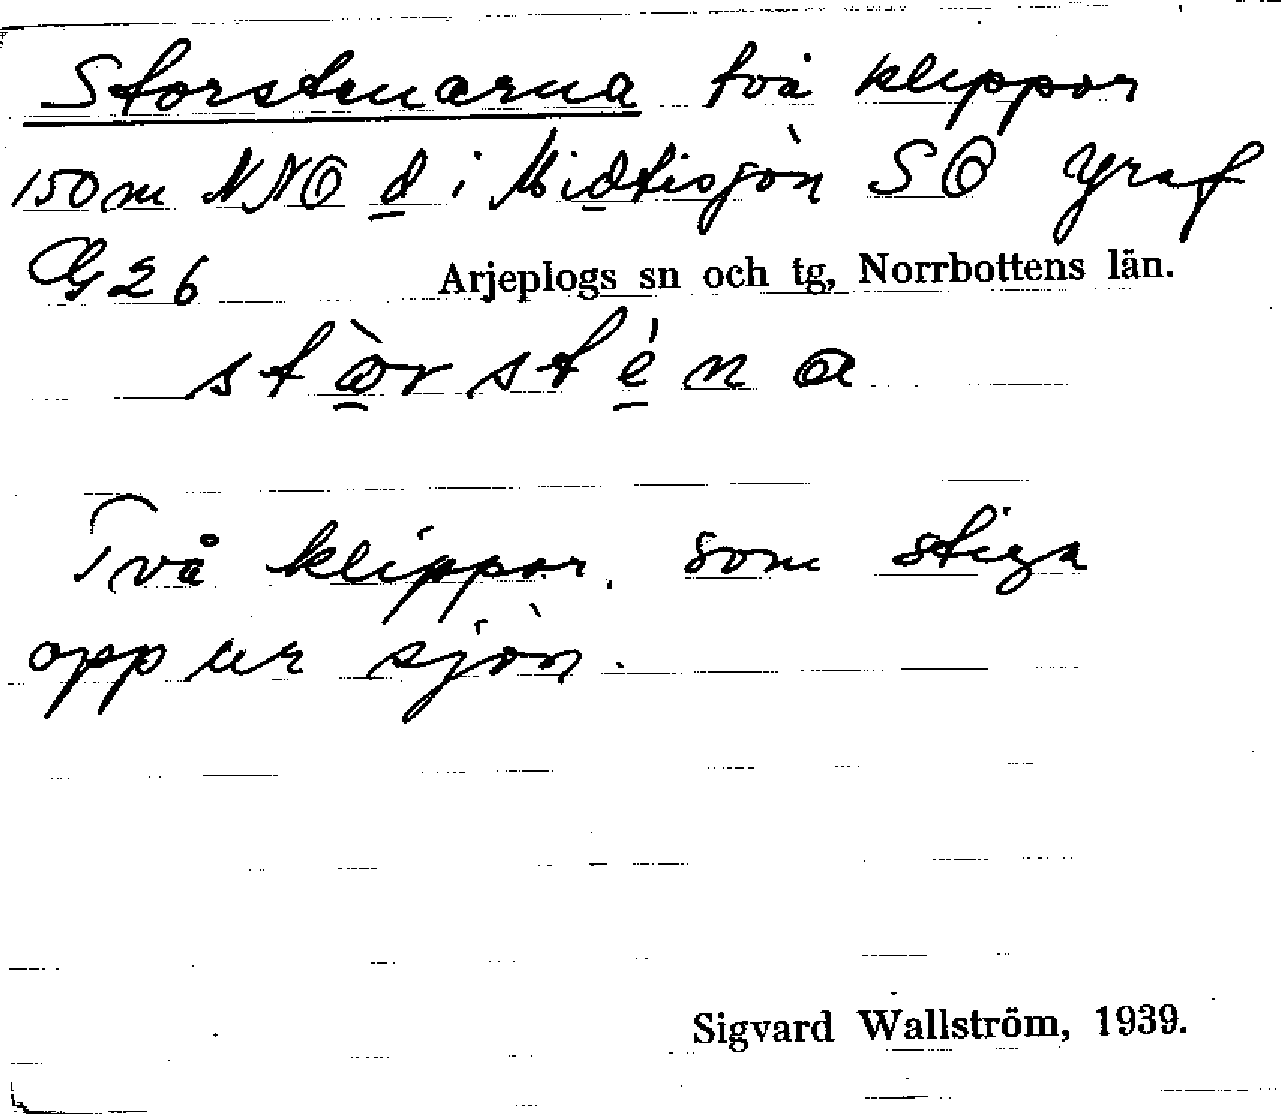 Storstenarna två klippor
150 m NNO d i Midtisjön SO Yraf
G26 Arjeplogs sn och tg, Norrbottens län.
stòrsténa
Två klippor, som stiga
opp ur sjön.
Sigvard Wallström, 1939.